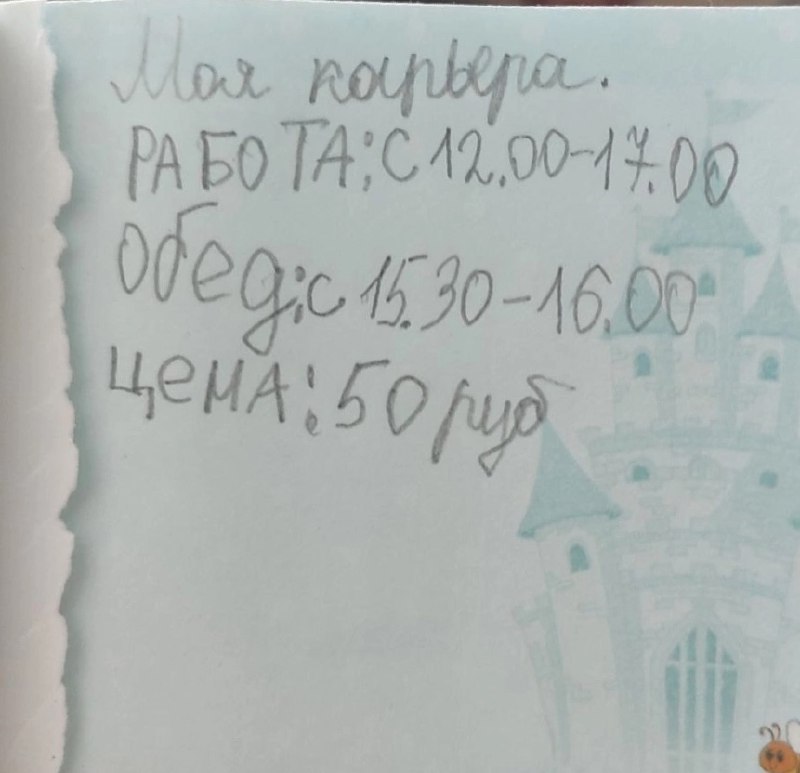 Моя карьера.
РАБОТА: С 12.00-17.00
Обед: с 15.30-16.00
Цена: 50 руб